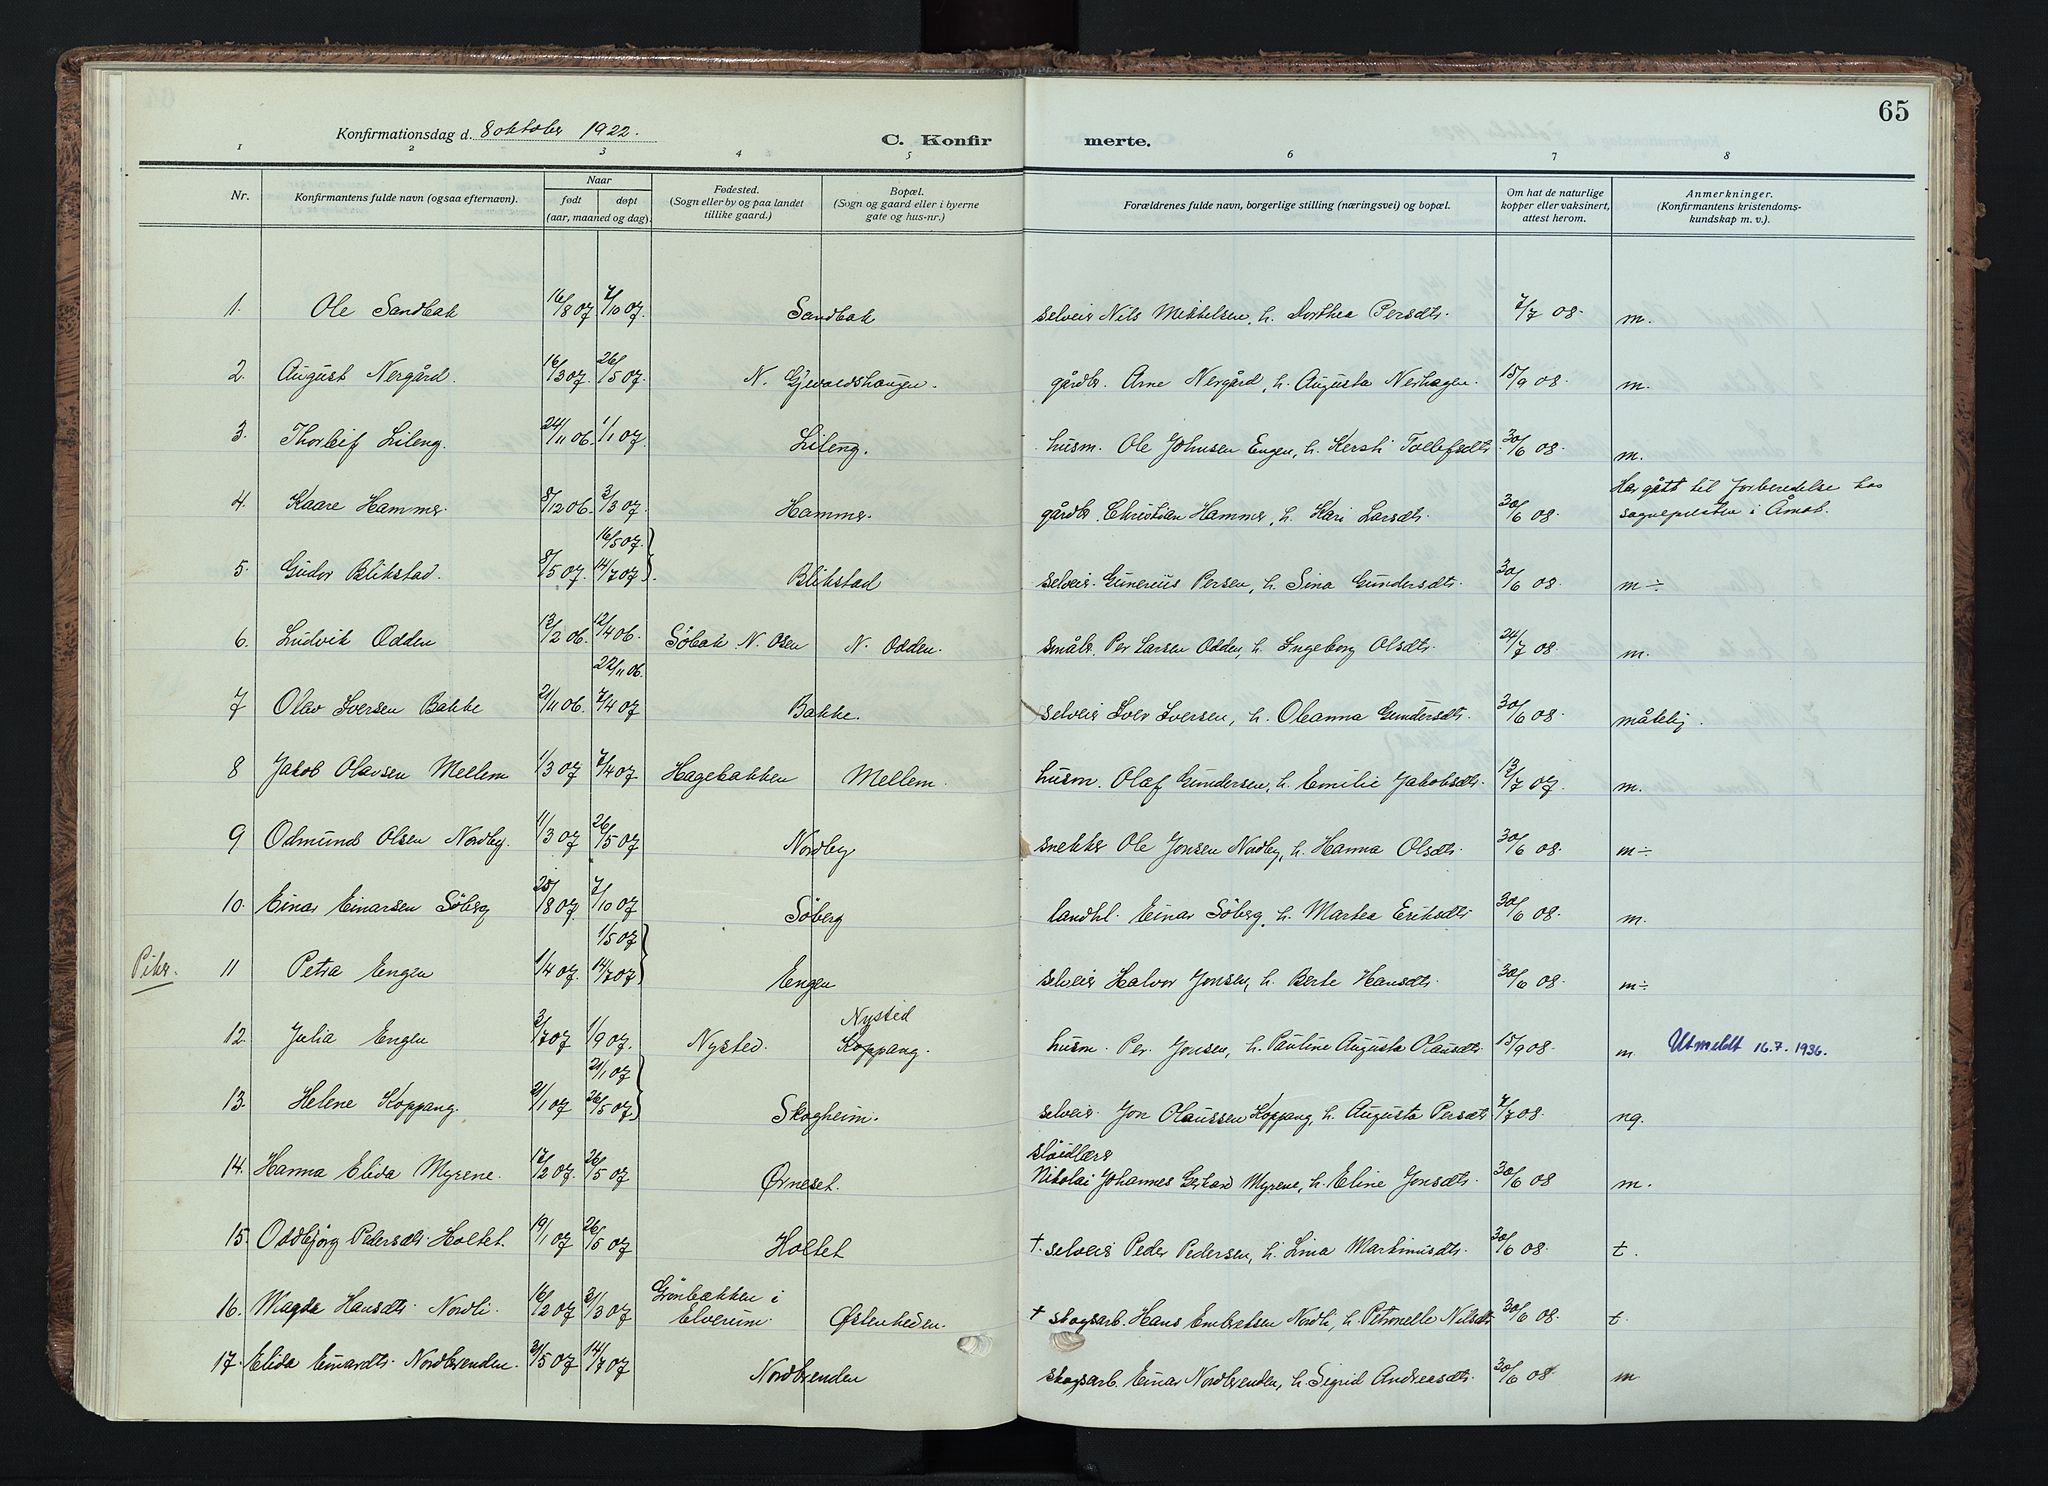 65
Konfirmationsdag d. 8 oktober 1922.
C. Konfirmerte.
1 2 3 4 5 6 7 8
Nr.
Konfirmantens fulde navn (ogsaa efternavn).
Naar
født døpt
(aar, maaned og dag).
Fødested.
(Sogn eller by og paa landet
tillike gaard.)
Bopæl.
(Sogn og gaard eller i byerne
gate og hus-nr.)
Forældrenes fulde navn, borgerlige stilling (næringsvei) og bopæl.
Om hat de naturlige
kopper eller vaksinert,
attest herom.
Anmerkninger.
(Konfirmantens kristendoms-
kundskap m. v.).
1. Ole Sandbak 16/8 07 7/10 07. Sandbak selveir Nils Mikkelsen, h. Dorthea Persdtr. 7/7 08. m.
2. August Nergård. 16/3 07. 26/5 07. N. Gjevaldshaugen. gårdbr. Arne Nergård, h. Augusta Nerhagen. 15/9 08. m.
3. Thorleif Lileng. 24/11 06. 1/1 07. Lileng. husm. Ole Johnsen Engen, h. Kersti Tollefsdtr. 30/6 08. m.
4. Kaare Hammer. 8/12 06. 3/3 07. Hammer. gårdbr. Christian Hammer, h. Kari Larsdtr. 30/6 08. Har gått til forberedelse hos
sognepresten i Åmot.
16/5 07.
5. Gudor Blikstad. 8/5 07. 14/7 07. Blikstad selveir. Gunerius Persen, h. Sina Gundersdtr. 30/6 08. m÷
6. Ludvik Odden 13/2 06. 12/4 06. Søbak N. Osen N. Odden. småbr. Per Larsen Odden, h. Ingeborg Olsdtr. 24/7 08. m.
22/11 06.
7 Olav Iversen Bakke 21/11 06. 7/4 07 Bakke. selveir Iver Iversen, h. Oleanna Gundersdtr. 30/6 08. måtelig.
8 Jakob Olavsen Mellem 1/3 07 7/4 07 Hagebakken Mellem. husm. Olaf Gundersen, h. Emilie Jakobsdtr. 13/7 07. m.
9 Odmund Olsen Nordby. 11/3 07 26/5 07. Nordby snekker Ole Jonsen Nordby, h. Hanna Olsdtr. 30/6 08. m÷
10. Einar Einarsen Søberg 25/8 07. 7/10 07 Søberg landhl. Einar Søberg, h. Martea Eriksdtr 30/6 08. m.
1/5 07
Piker. 11 Petra Engen 1/4 07. 14/7 07 Engen selveir Halvor Jonsen, h. Berte Hansdtr. 30/6 08. m÷
Nysted
12. Julia Engen 3/7 07 1/9 07. Nysted. Koppang. husm. Per Jonsen, h. Pauline Augusta Olausdtr. 15/9 08. m. Utmeldt 16.7.1936.
21/1 07
13. Helene Koppang. 21/1 07 26/5 07. Skogheim. selveir. Jon Olaussen Koppang, h. Augusta Persdtr 7/7 08. ng.
sløidlærer
14. Hanna Elida Myrene. 17/2 07. 26/5 07 Ørneset. Nikolai Johannes Gerhard Myrene, h. Eline Jonsdtr. 30/6 08 m.
15. Oddbjørg Pedersdtr. Holtet. 19/1 07 26/5 07 Holtet † selveir Peder Pedersen, h. Lina Martinusdtr. 30/6 08. t.
Grønbækken i
16. Magda Hansdtr. Nordli. 16/2 07 3/3 07 Elverum. Østenheden. † skogsarb. Hans Embretsen Nordli, h. Petronelle Nilsdtr 30/6 08. t.
17. Elida Einardtr. Nordbrenden. 31/5 07 14/7 07 Nordbrenden skogsarb. Einar Nordbrenden, h. Sigrid Andreasdtr. 30/6 08. m